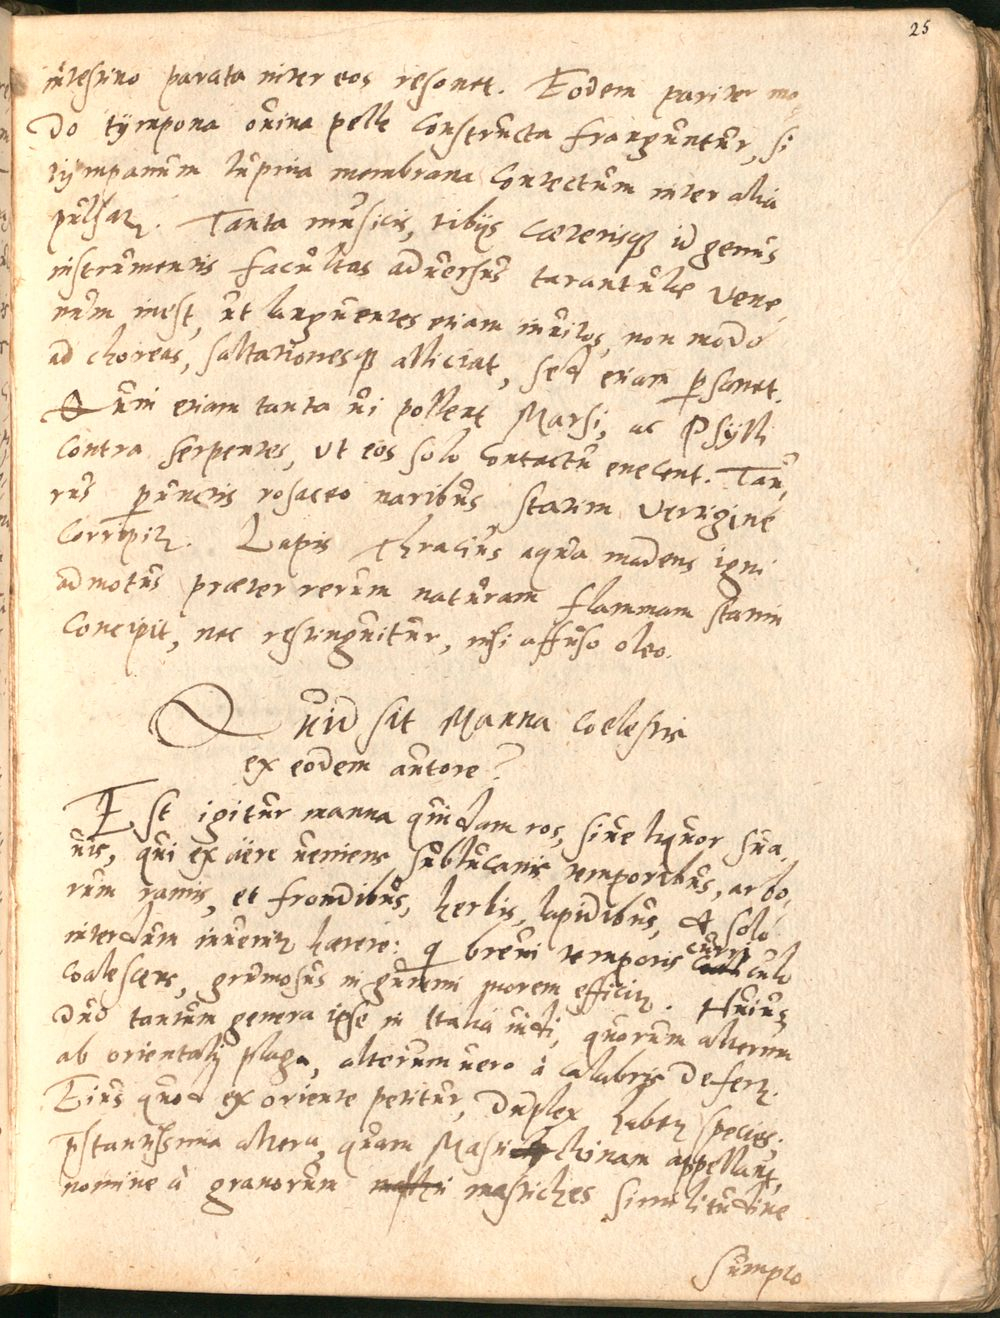 25
intestino parata inter eos resonet. Eodem pariter mo,
do tÿmpona ovina pelle constructa franguntur, si
tÿmpanum lupina membrana contectum inter alia
pulsatʒ. Tanta musicis, tibijs cæterisqʒ id genus
instrumentis facultas adversus tarantulæ vene,
num inest, ut languentes etiam invitos, non modo
ad choreas, saltationesqʒ alliciat, sed etiam ꝑsanet.
Quin etiam tanta vi pollent Marsi, ac Psÿlli
contra serpentes, ut eos solo contactu enecent. Tau,
rus ꝑunctis rosaceo naribus statim vertigine
corripitʒ. Lapis Thracius aqua madens igni
admotus præter rerum naturam flammam statim
concipit, nec restinguitur, nisi affuso oleo.
Quid sit Manna coelestis
ex eodem autore?
Est igitur manna quidam ros, sive liquor sua,
vis, qui ex aëre veniens sublucanis temporibus, arbo,
rum ramis, et frondibus, herbis, lapidibus, & solo
interdum invenitʒ hærere: q brevi temporis curri
culo
coalescens, grumosus in gummi morem efficitʒ. Huius
duo tantum genera ipse in Italia vidi, quorum alterum
ab orientalj plaga, alterum vero à calabris defertʒ.
Eius quod ex oriente petitur, duplex habetʒ species;
pstantissima altera, quam Masti chinam appellant,
nomine à granorum mastiches similitudine
sumpto